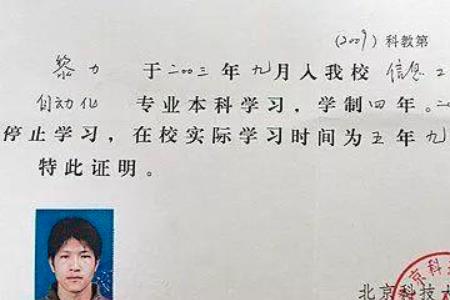 (2009) 科教第
黎力 于二〇〇三年九月入我校信息工
自动化 专业本科学习，学制四年。二
停止学习，在校实际学习时间为五年九
特此证明。
北京科技大
京科